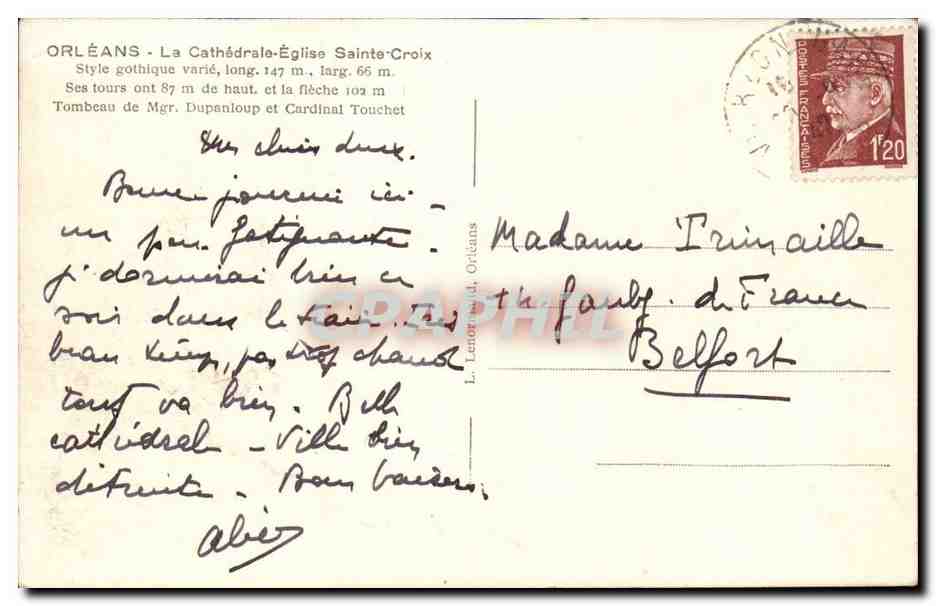 ORLÉANS - La Cathédrale-Église Sainte-Croix
Style gothique varié, long. 147 m., larg. 66 m.
Ses tours ont 87 m de haut. et la flèche 102 m
Tombeau de Mgr. Dupanloup et Cardinal Touchet
Mes chéris deux.
Bonne journée ici -
un peu fatigante -
je dormirai bien ce
soir dans le train. Très
beau temps, pas trop chaud
tout va bien. Belle
cathédrale - Ville bien
détruite. Bons baisers.
L. Lenormand, Orléans
POSTES FRANÇAISES
1F20
Madame Trimaille
Faubg. de France
Belfort
CPAPHIL